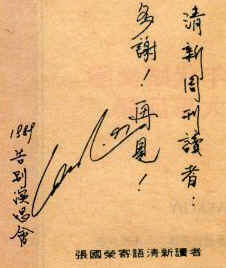 清新周刊讀者：
多謝！再見！
1989 告別演唱會
張國榮寄語清新讀者